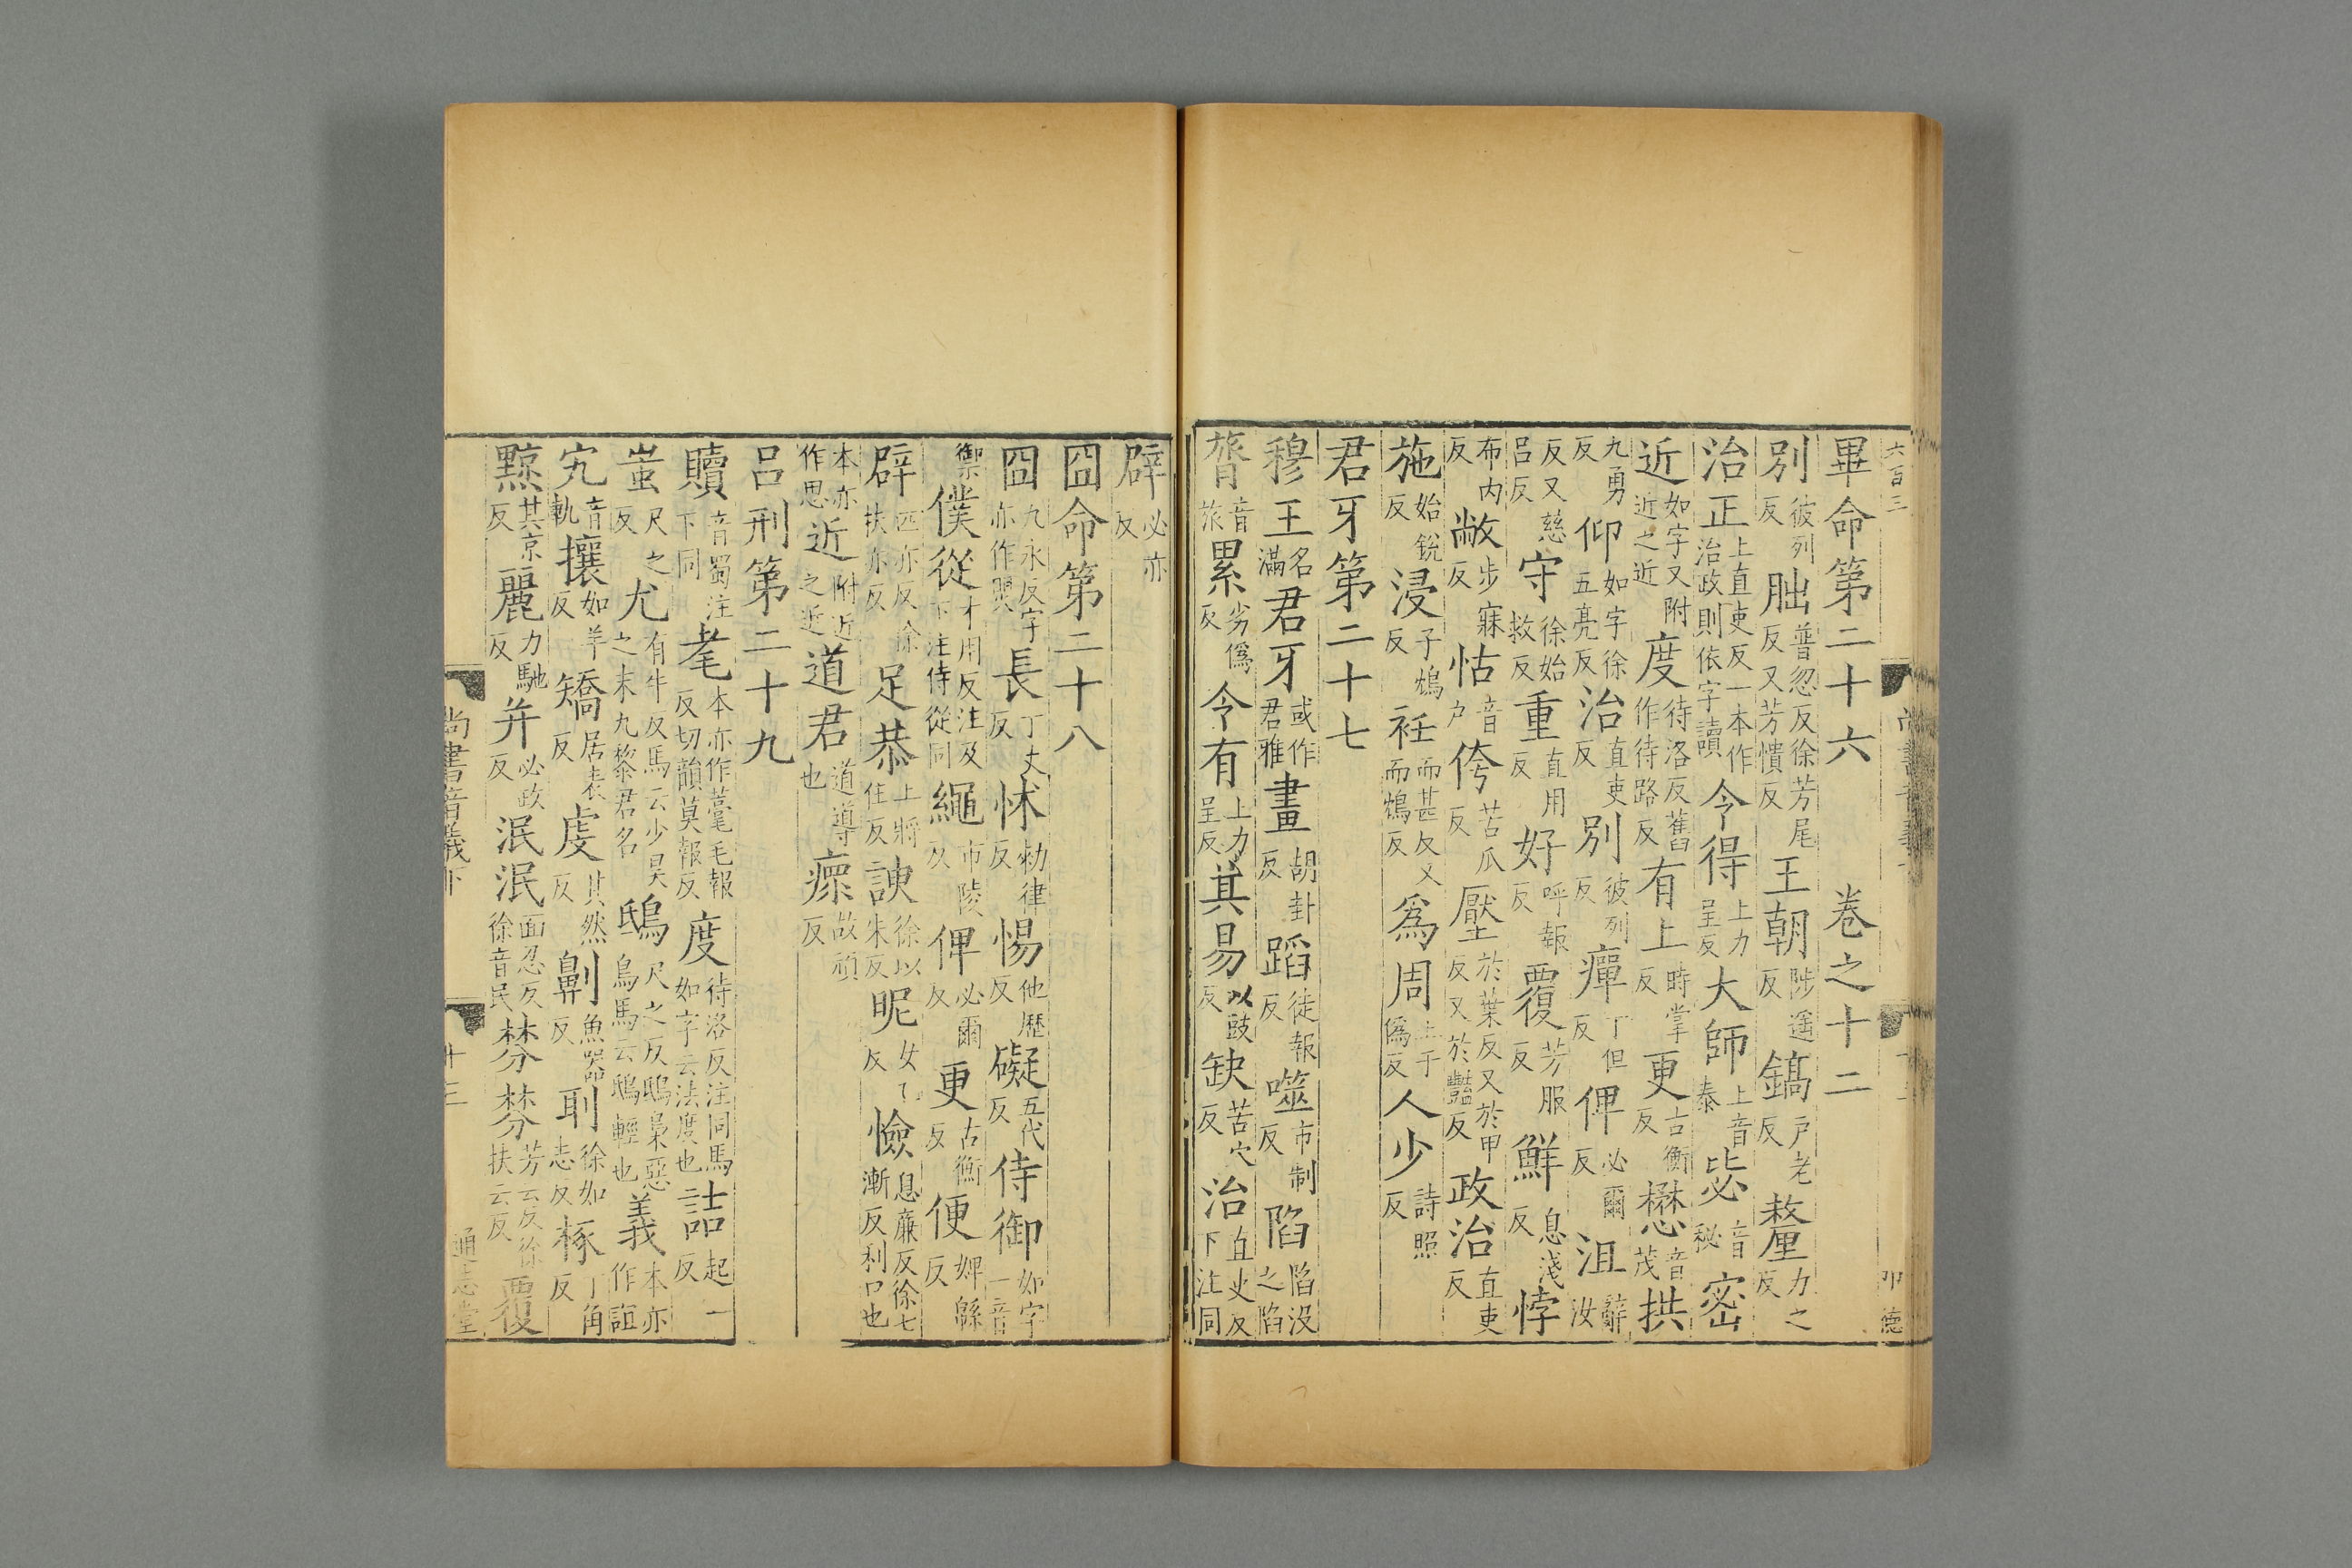 六百三
畢命第二十六 卷之十二
別彼列反 朏普忽反徐芳尾反又芳憒反 王朝陟遥反 鎬戶老反 嫠力之反
治正上直吏反一本作治政則依字讀 令得上力呈反 大師上音泰 毖音秘 密
近如字又附近之近 度待洛反舊作待路反 有上時掌反 更古衡反 懋音茂 拱
九勇反 仰如字徐五亮反 治直吏反 別彼列反 癉丁但反 俾必爾反 沮辭汝
反又慈呂反 守徐始救反 重直用反 好呼報反 覆芳服反 鮮息淺反 悖
布内反 敝步寐反 怙音户 侉苦瓜反 壓於葉反又於甲反又於豔反 政治直吏反
施始銳反 浸子鴆反 衽而甚反又而鴆反 爲周上于僞反 人少詩照反
君牙第二十七
穆王名滿 君牙或作君雅 畫胡卦反 蹈徒報反 噬市制反 陷陷没之陷
膂音旅 累劣僞反 令有上力呈反 其易以豉反 缺苦穴反 治直吏反下注同
辟必亦反
冏命第二十八
冏九永反字亦作煛 長丁丈反 怵勑律反 惕他歷反 礙五代反 侍御如字一音
禦 僕從才用反注及下注侍從同 繩市陵反 俾必爾反 更古衡反 便婢緜反
辟匹亦反徐扶亦反 足恭上將住反 諛徐以朱反 昵女乙反 憸息廉反徐七漸反利口也
本亦作思 近附近之近 道君道導也 瘝故頑反
呂刑第二十九
贖音蜀注下同 耄本亦作薹毛報反切韻莫報反 度待洛反注同馬如字云法度也 詰起一反
蚩尺之反 尤有牛反馬云少昊之末九黎君名 鴟尺之反鴟梟惡鳥馬云鴟輕也 義本亦作誼
宄音軌 攘如羊反 矯居表反 虔其然反 劓魚器反 刵徐如志反 椓丁角反
黥其京反 麗力馳反 并必政反 泯泯面忍反徐音民 棼棼芳云反徐扶云反 覆
尚書音義下 十三 通志堂